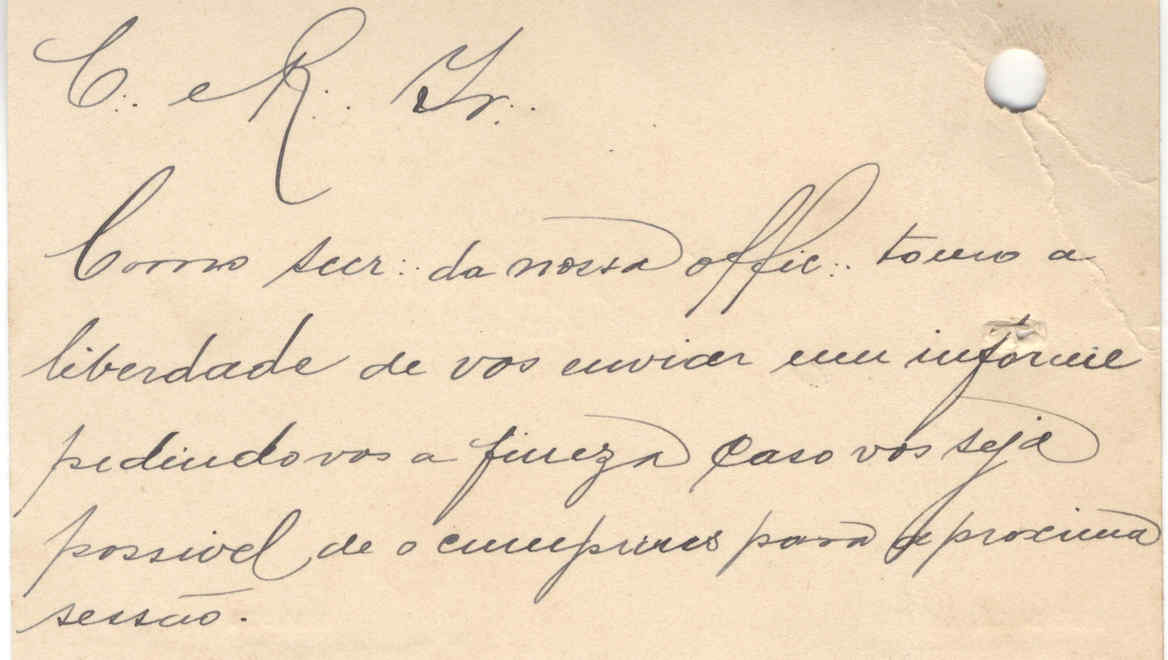 C∴ e R∴ Ir∴
Como secr∴ da nossa offic∴ tomo a
liberdade de vos enviar um informe
pedindo vos a fineza caso vos seja
possivel de o cumprires para a proxima
sessão.